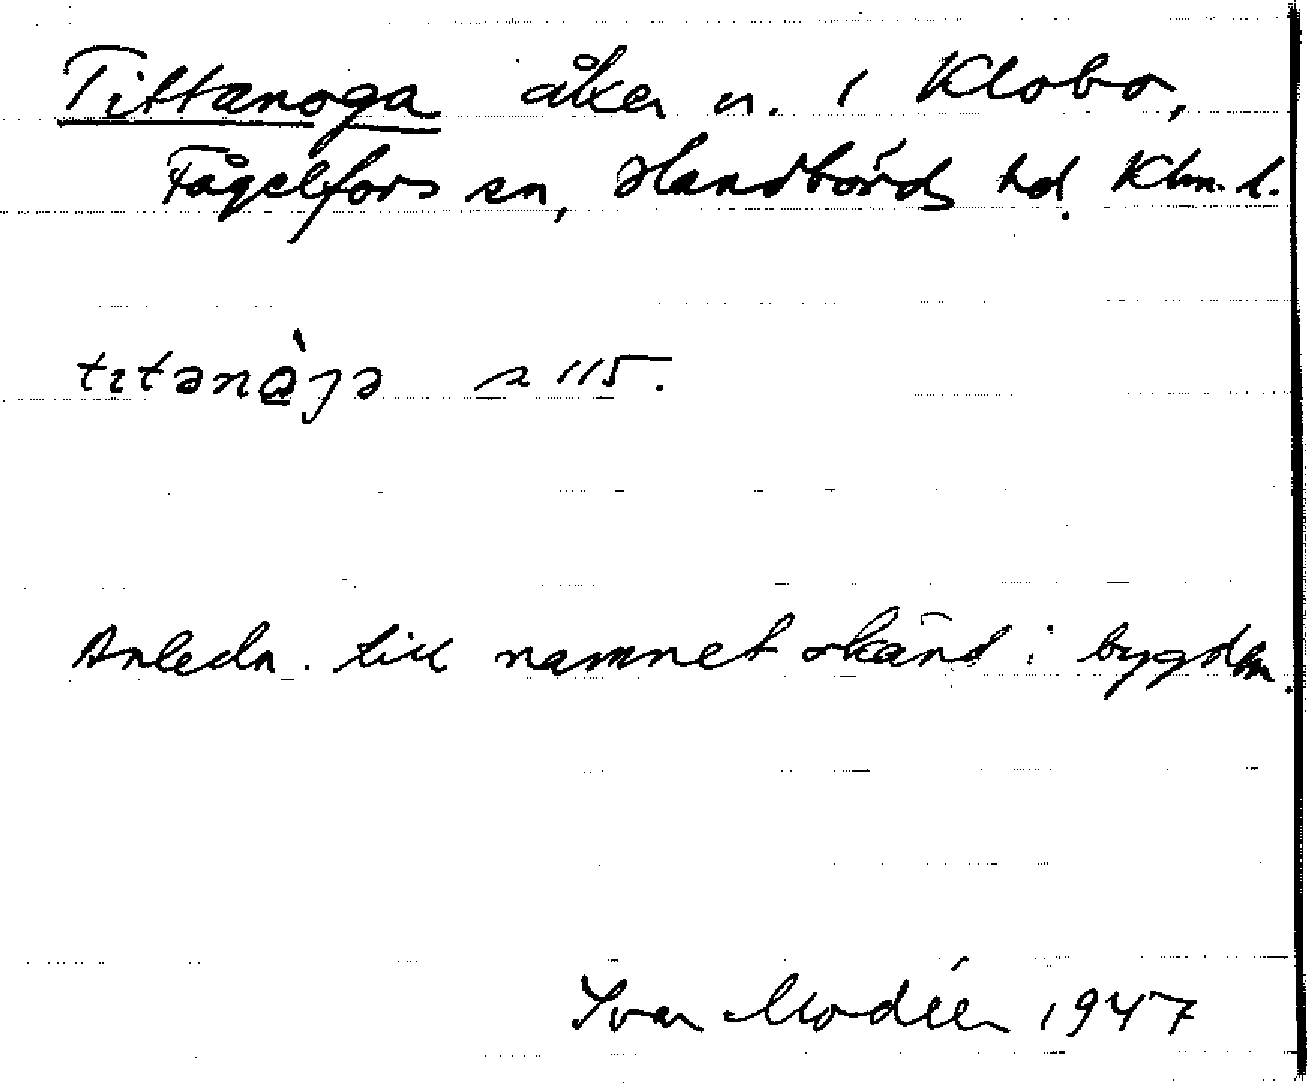 Tittanoga åker n. i Klobo,
Fågelfors sn, Handbörds hd. Klm. l.
tɪtənə̀gə s 115.
Anledn. till namnet okänd i bygden.
Ivar Modéer 1947